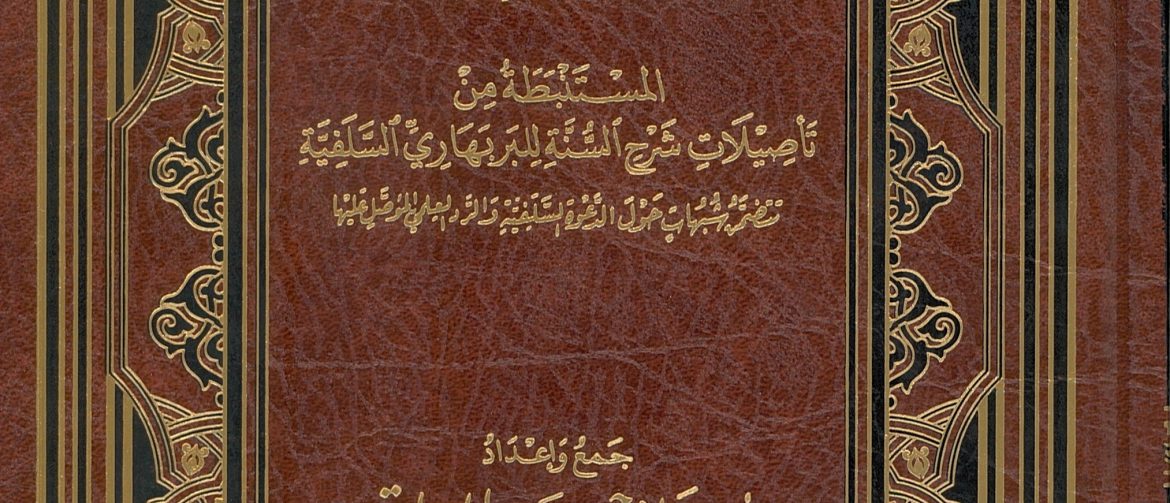 المُسْتَنْبَطَةُ مِنْ
تَأْصِيْلَاتِ شَرْحِ السُّنَّةِ لِلبَرْبَهَارِيِّ السَّلَفِيَّةِ
تتضمَّنُ شُبُهَاتٍ حَوْلَ الدَّعْوَةِ السَّلَفِيَّةِ وَالرَّد العِلمي المُؤصَّل عَلَيْها
جَمعُ وَإِعْدَادُ